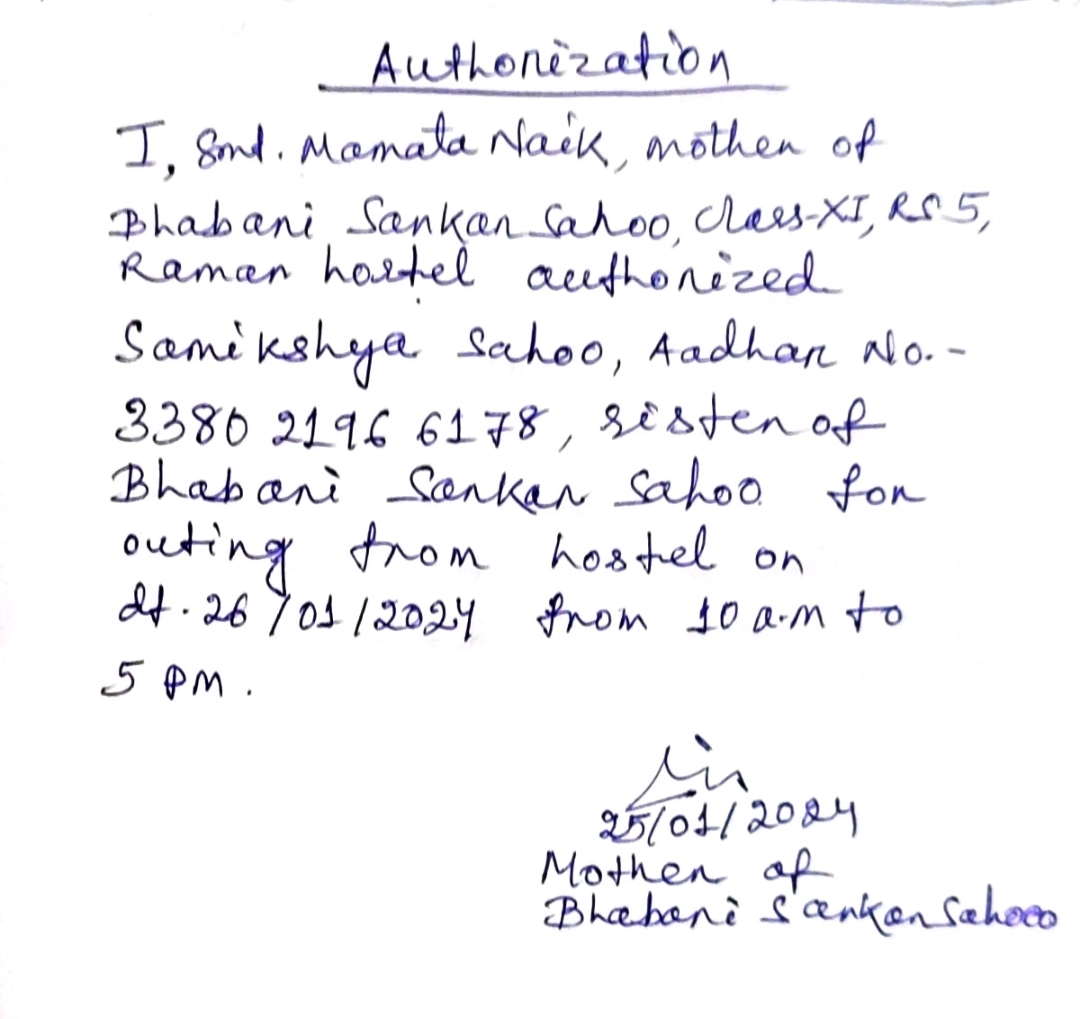 Authorization
I, Smt. Mamata Naik, mother of
Bhabani Sankar Sahoo, Class-XI, RS 5,
Raman hostel authorized
Samikshya Sahoo, Aadhar No.-
3380 2196 6178, sister of
Bhabani Sankar Sahoo for
outing from hostel on
dt. 26/01/2024 from 10 a.m to
5 PM.
25/01/2024
Mother of
Bhabani Sankar Sahoo